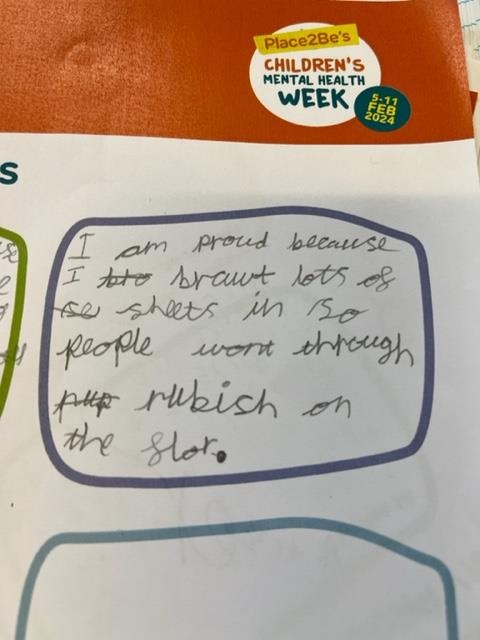 Place2Be's
CHILDREN'S
MENTAL HEALTH
WEEK
5-11
FEB
2024
s
I am proud because
I bro brawt lots of
se sheets in so
people wont through
rubish on
the flor.